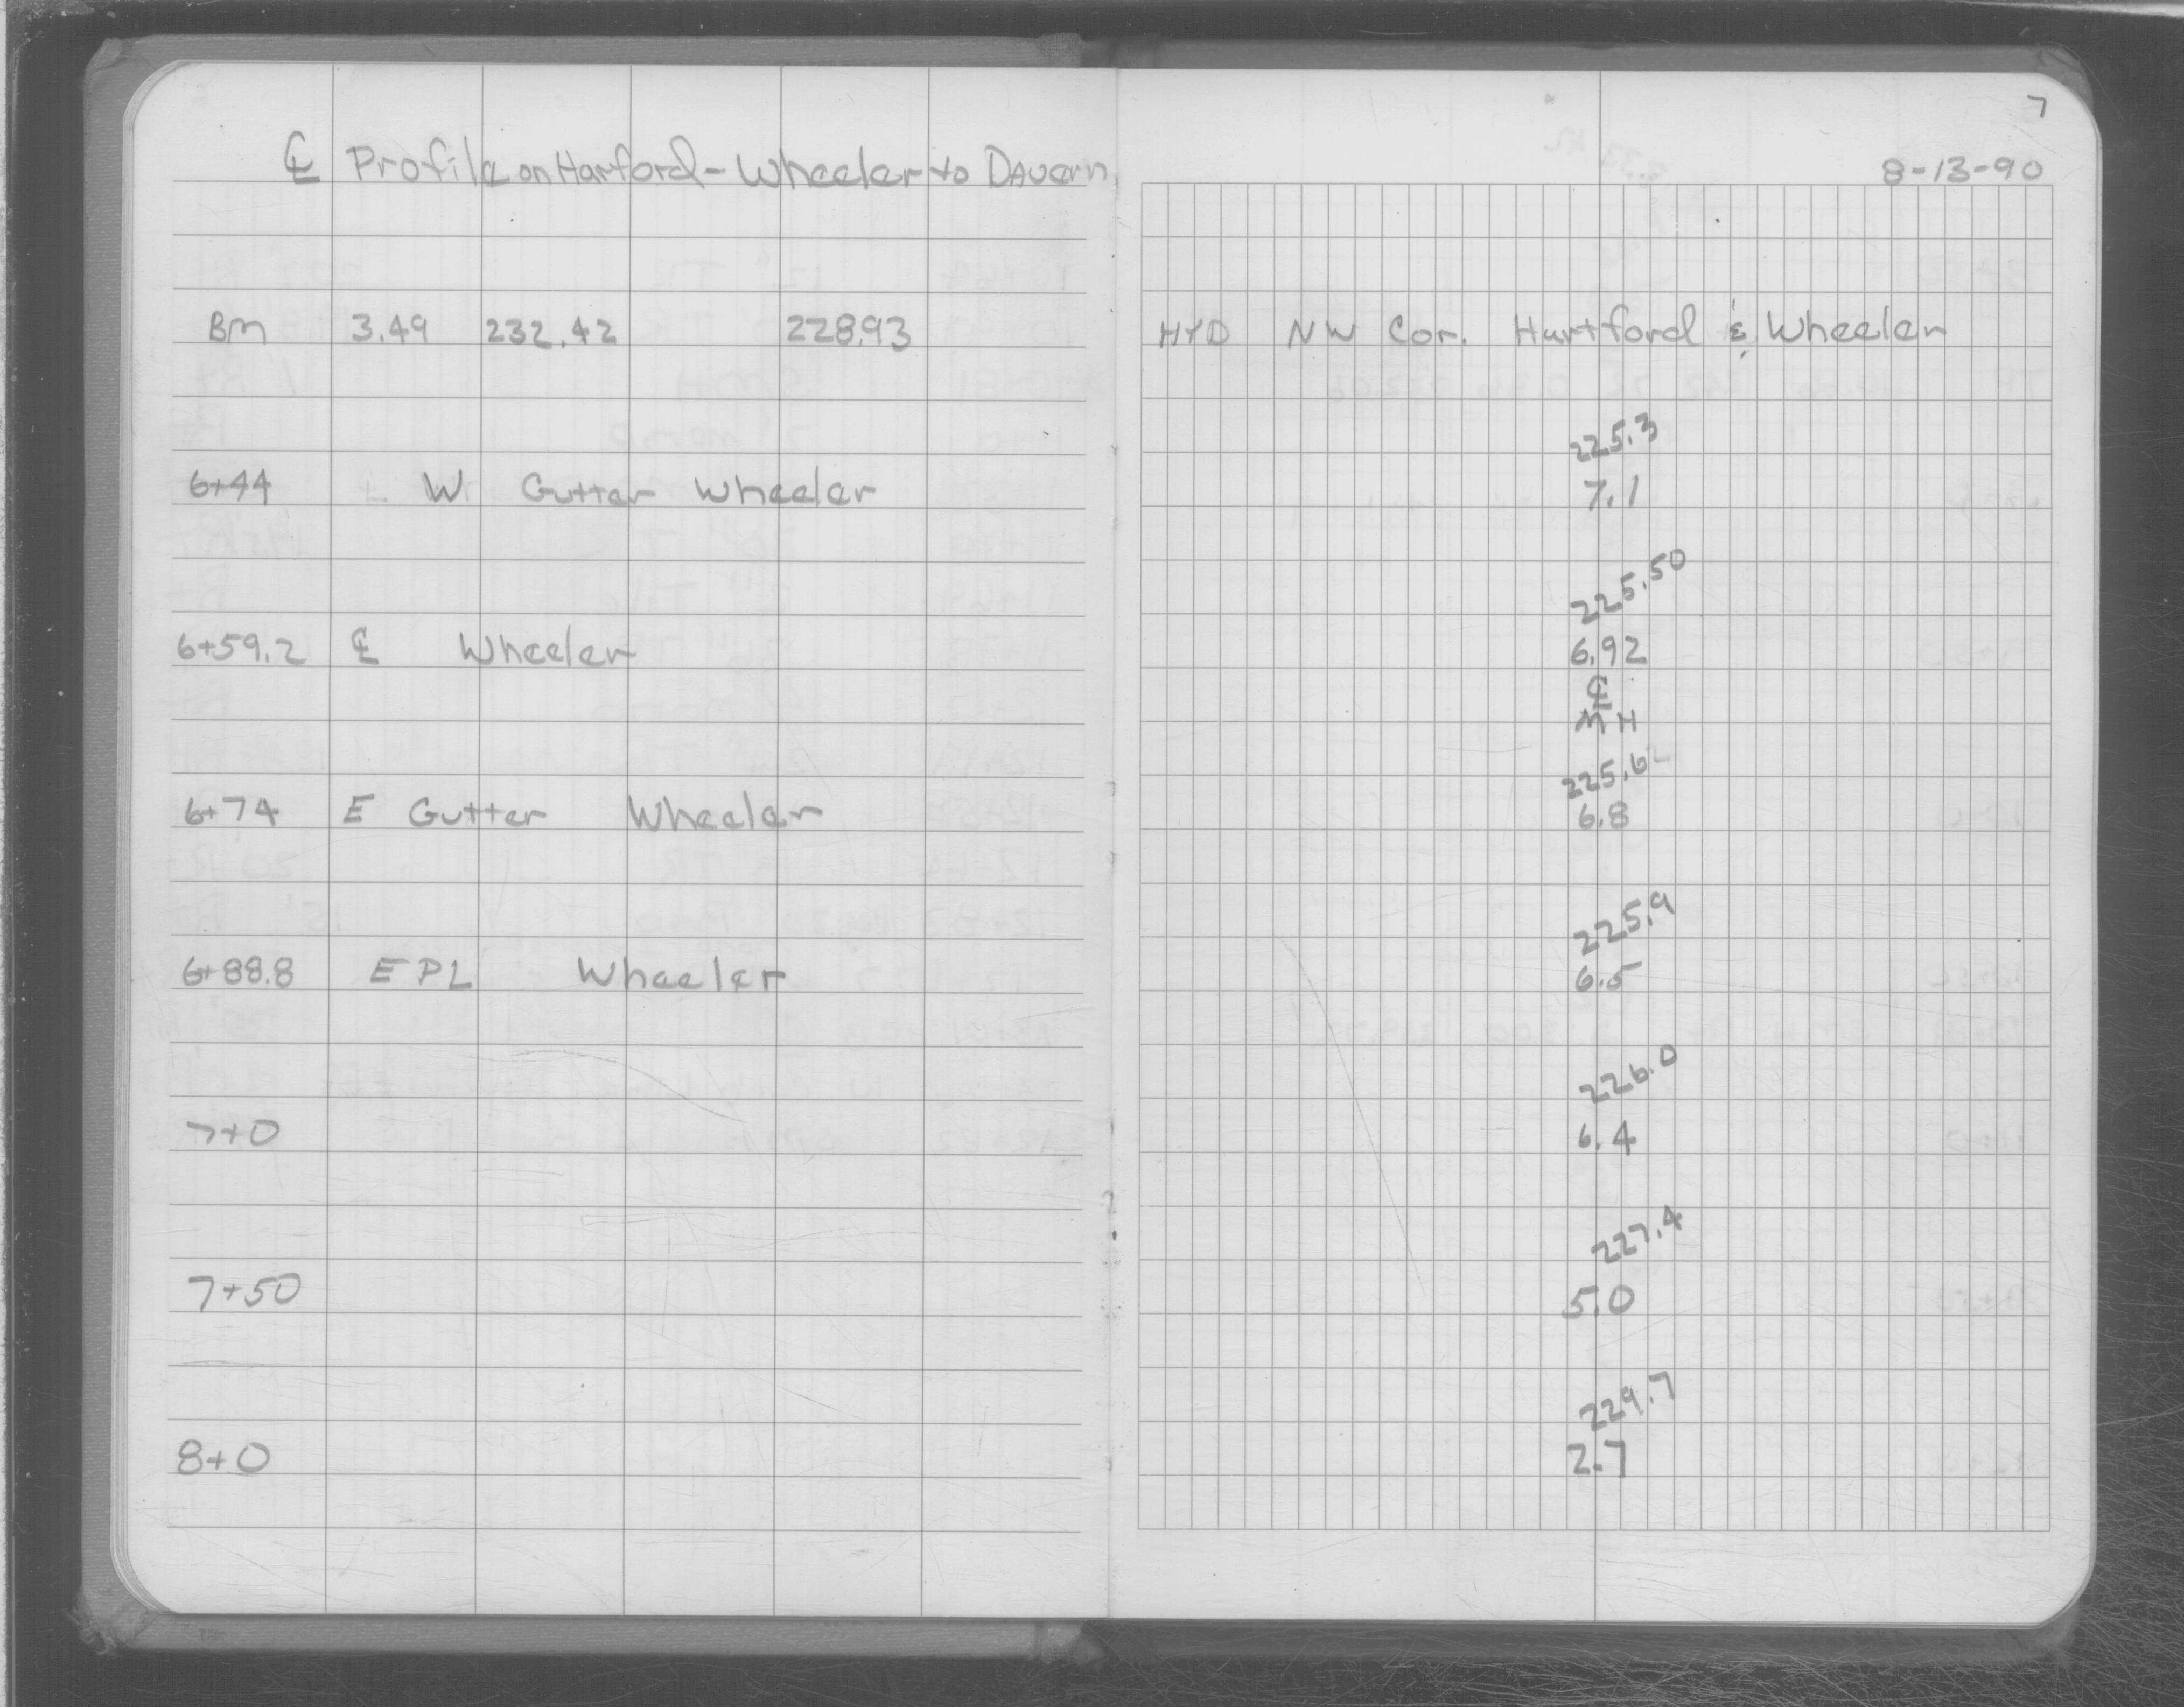 7
℄ Profile on Hartford - Wheeler to Davern 8-13-90
BM 3.49 232.42 228.93 HYD NW Cor. Hartford & Wheeler
225.3
6+44 W Gutter Wheeler 7.1
225.50
6+59.2 ℄ Wheeler 6.92
℄
MH
225.62
6+74 E Gutter Wheeler 6.8
225.9
6+88.8 E PL Wheeler 6.5
226.0
7+0 6.4
227.4
7+50 5.0
229.7
8+0 2.7